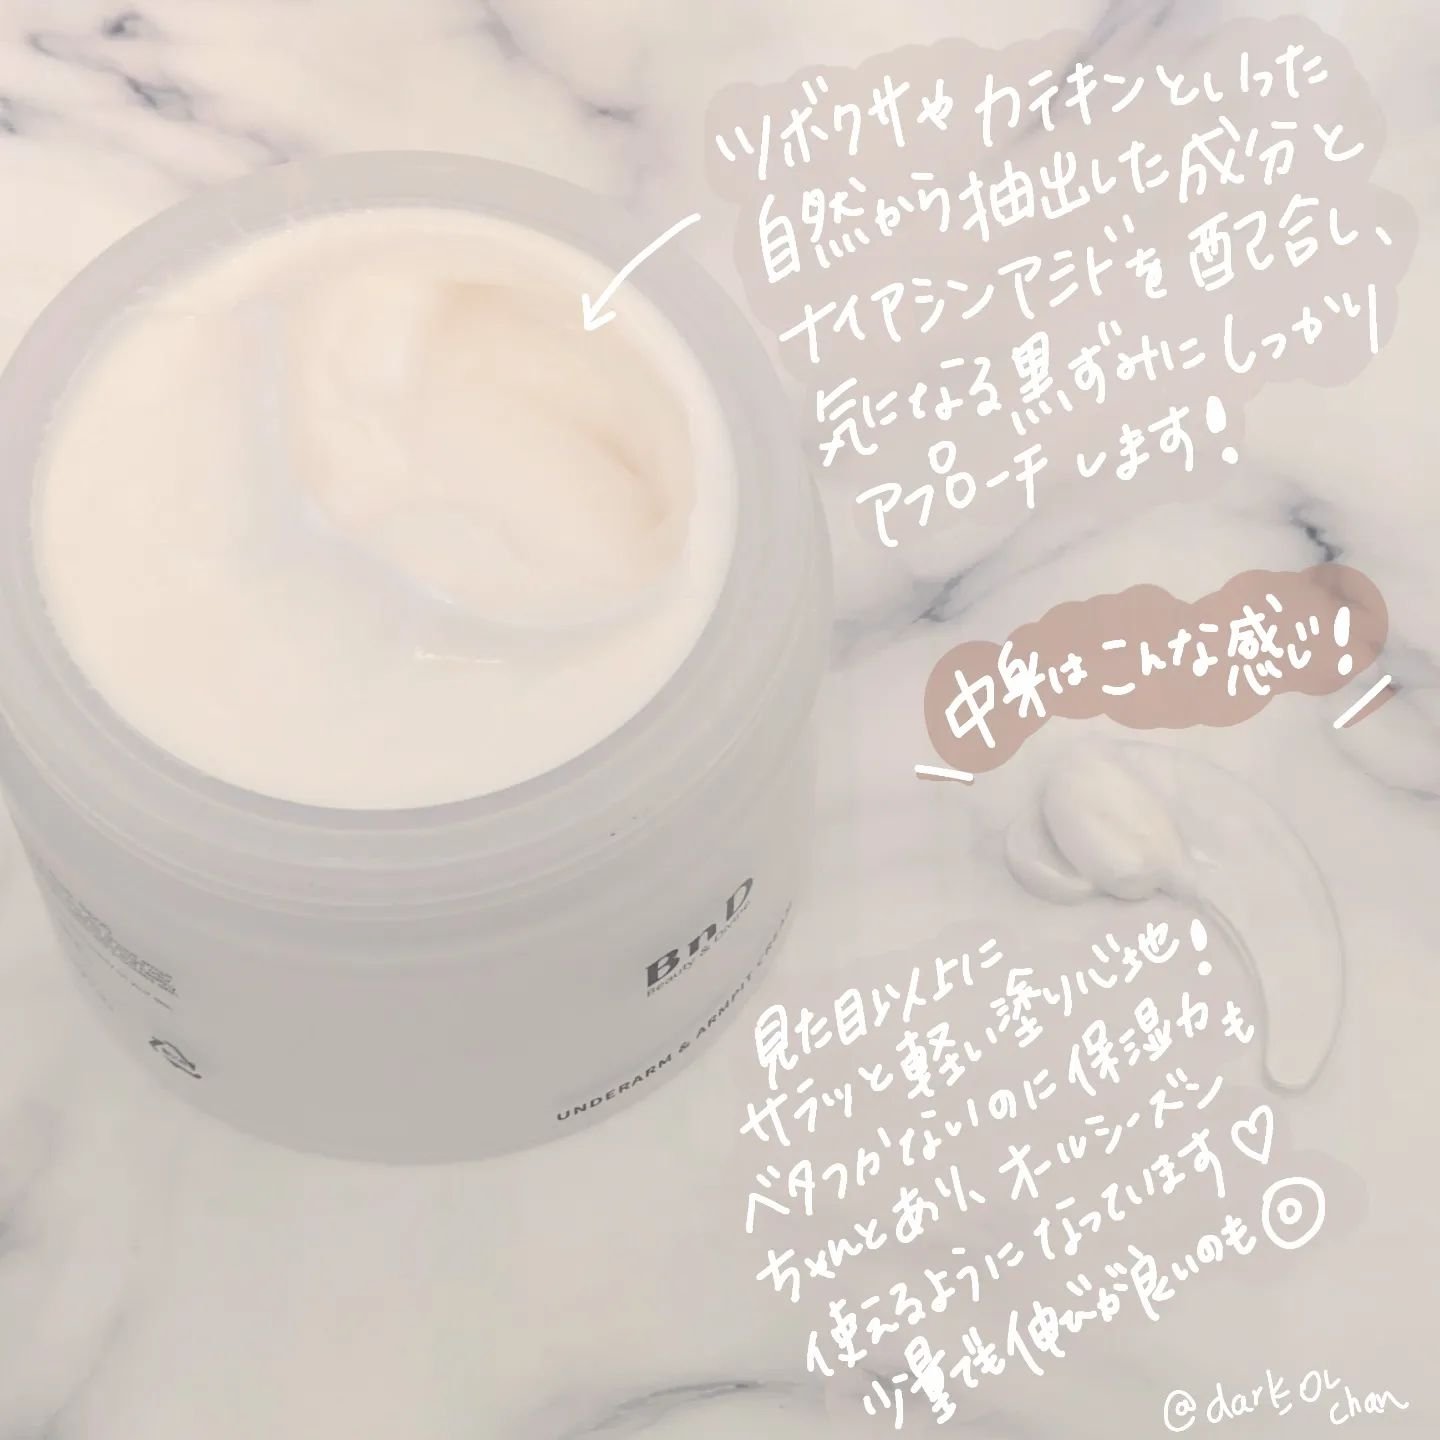 ツボクサやカテキンといった
自然から抽出した成分と
ナイアシンアミドを配合し、
気になる黒ずみにしっかり
アプローチします!
中身はこんな感じ!
BnD
Beauty & Divine
UNDERARM & ARMPIT CREAM
見た目以上に
サラッと軽い塗り心地!
ベタつかないのに保湿力も
ちゃんとあり、オールシーズン
使えるようになっています♡
少量でも伸びが良いのも◎
@dark_OL
chan